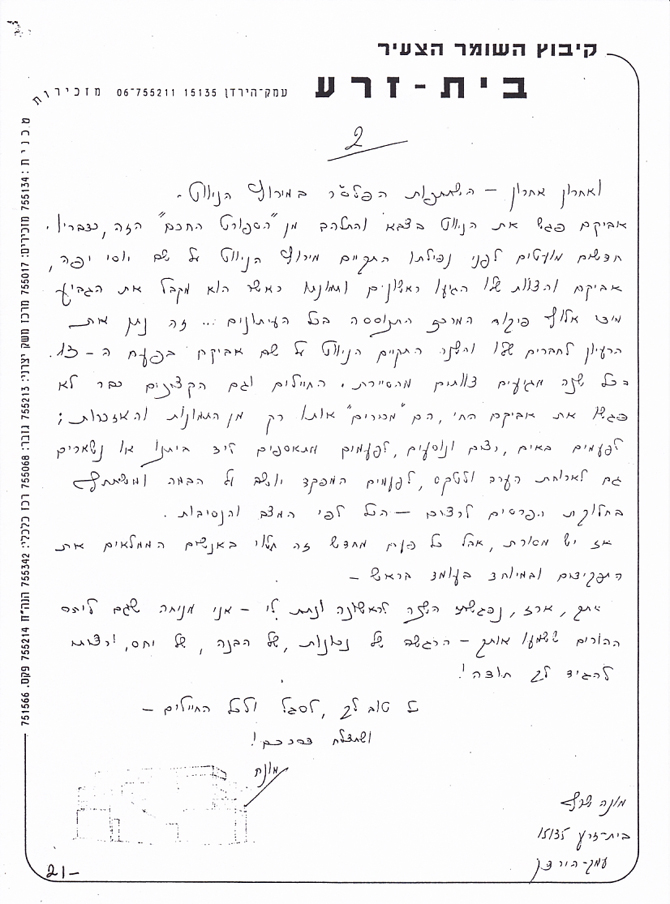 קיבוץ השומר הצעיר
בית-זרע
עמק-הירדן 15135 06-755211 מזכירות
מכנית: 755134 מזכירים: 755017 מרכז משק יצרני: 755213 גזבר: 755068 רכז כלכלי: 755342 הנה"ח 755214 פקס. 751566
2
ואחרון אחרון – השתתפות הפלס"ר במירוץ הניווט.
אביקם פגש את הניווט בצבא והתלהב מן "הספורט החכם" הזה, כדבריו.
חדשים מועטים לפני נפילתו התקיים מירוץ הניווט על שם יוסי יפה,
אביקם והצוות שלו הגיעו ראשונים ותמונתו כאשר הוא מקבל את הגביע
מידי אלוף פיקוד המרכז התנוססה בכל העיתונים... זה נתן את
הרעיון לחברים שלו והשנה התקיים הניווט על שם אביקם בפעם ה-13.
בכל שנה מגיעים צוותים מהסיירת. החיילים וגם הקצינים כבר לא
פגשו את אביקם החי, הם "מכירים" אותו רק מן התמונות והאזכרות;
לפעמים באים, רצים ונוסעים, לפעמים מתאספים ליד ביתנו או נשארים
גם לארוחת הערב ולטקס, לפעמים המפקד יושב על הבמה ומשתתף
בחלוקת הפרסים לרצים – הכל לפי המצב והנסיבות.
אז יש מסורת, אבל כל פעם מחדש זה תלוי באנשים הממלאים את
התפקידים ובמיוחד בעומד בראש –
אתך, ארז, נפגשתי השנה לראשונה ונתת לי – אני מניחה שגם ליתר
ההורים ששמעו אותך – הרגשה של נכונות, של הבנה, של יחס, ורציתי
להגיד לך תודה!
כל טוב לך, לסגל ולכל החיילים –
ושתצלח דרככם!
מונה
מונה שרף
בית-זרע 15135
עמק-הירדן
21-